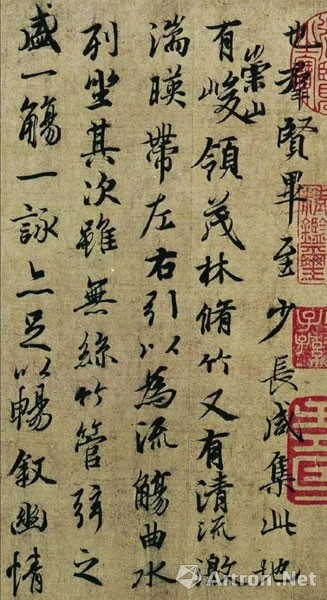 也羣賢畢至少長咸集此地
有崇山峻領茂林脩竹又有清流激
湍暎帶左右引以為流觴曲水
列坐其次雖無絲竹管弦之
盛一觴一詠亦足以暢敘幽情
雅昌艺术网
Artron.Net